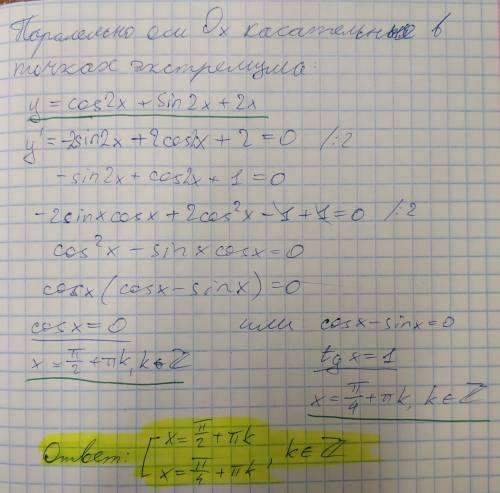 Паралельно оси Ox касательные в
точках экстремума:
y = cos2x + sin2x + 2x
y' = -2sin2x + 2cos2x + 2 = 0 /:2
-sin2x + cos2x + 1 = 0
-2sinxcosx + 2cos²x - 1 + 1 = 0 /:2
cos²x - sinxcosx = 0
cosx(cosx - sinx) = 0
cosx = 0 или cosx - sinx = 0
x = π/2 + πk, k∈ℤ tgx = 1
x = π/4 + πk, k∈ℤ
Ответ: [ x = π/2 + πk
x = π/4 + πk, k∈ℤ